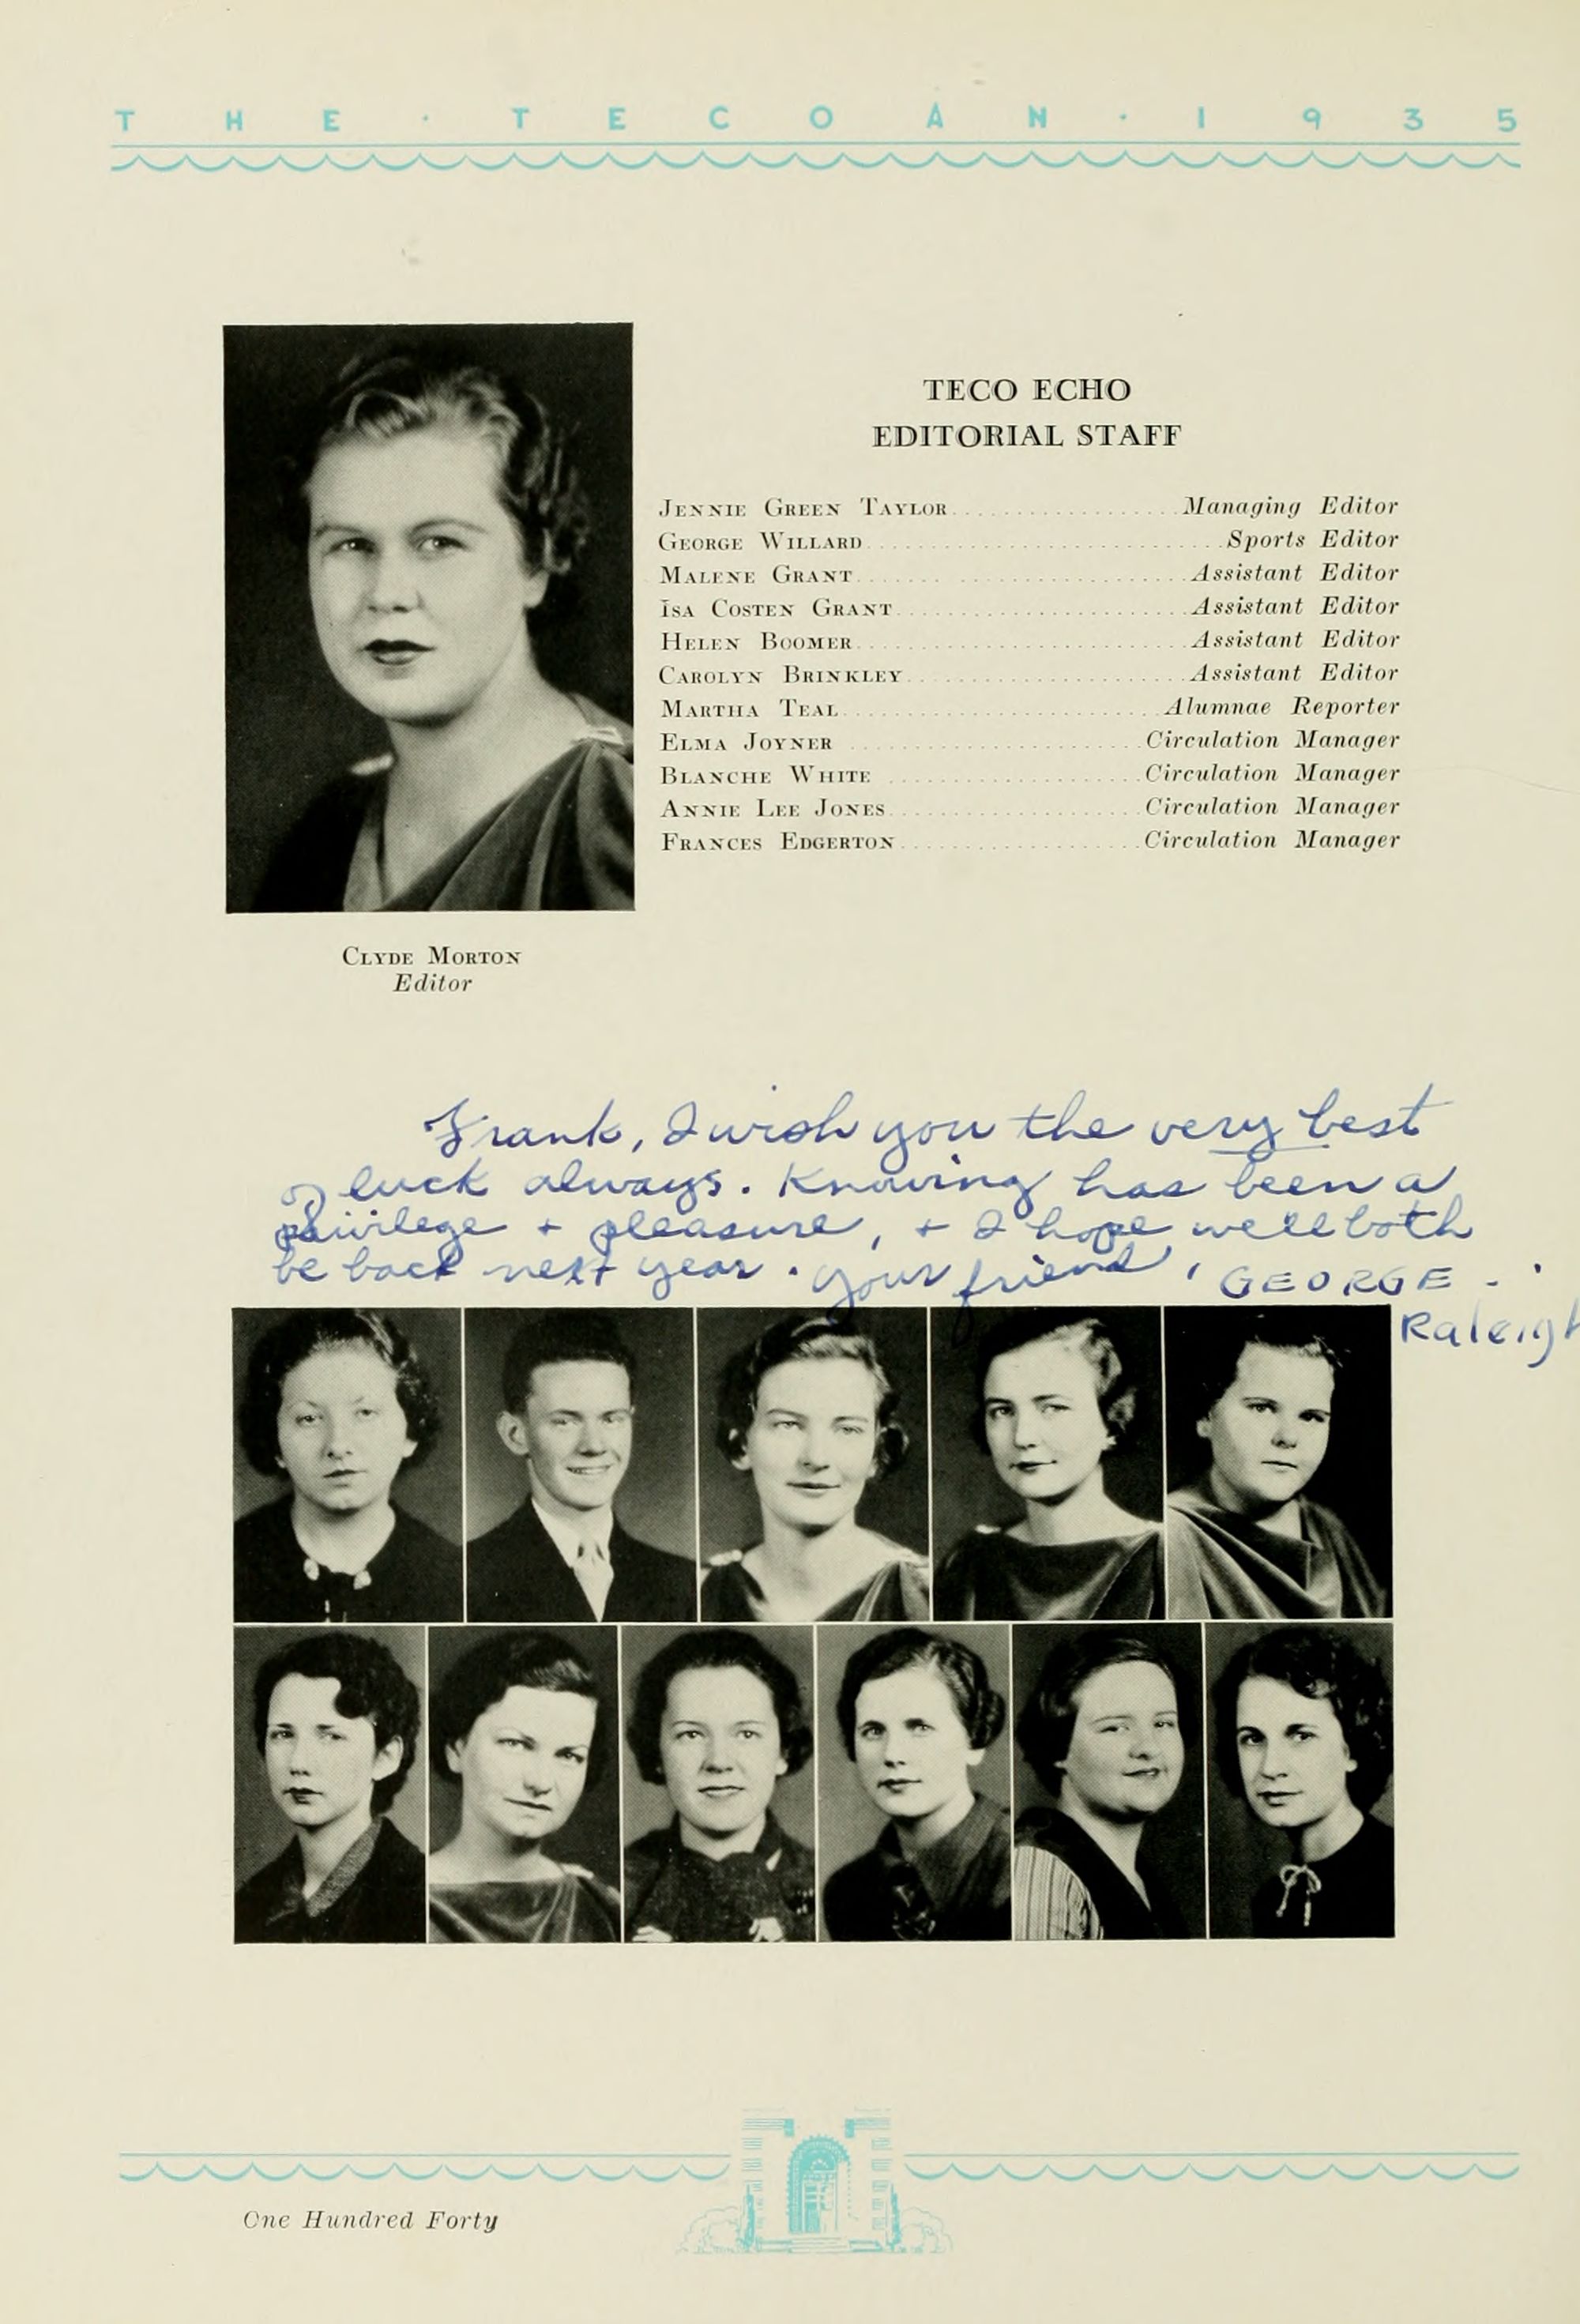 THE · TECOAN · 1935
TECO ECHO
EDITORIAL STAFF
JENNIE GREEN TAYLOR....................Managing Editor
GEORGE WILLARD....................Sports Editor
MALENE GRANT....................Assistant Editor
ISA COSTEN GRANT....................Assistant Editor
HELEN BOOMER....................Assistant Editor
CAROLYN BRINKLEY....................Assistant Editor
MARTHA TEAL....................Alumnae Reporter
ELMA JOYNER....................Circulation Manager
BLANCHE WHITE....................Circulation Manager
ANNIE LEE JONES....................Circulation Manager
FRANCES EDGERTON....................Circulation Manager
CLYDE MORTON
Editor
Frank, I wish you the very best
of luck always. Knowing has been a
privilege + pleasure, + I hope we'll both
be back next year. Your friend, GEORGE -
Raleigh
One Hundred Forty